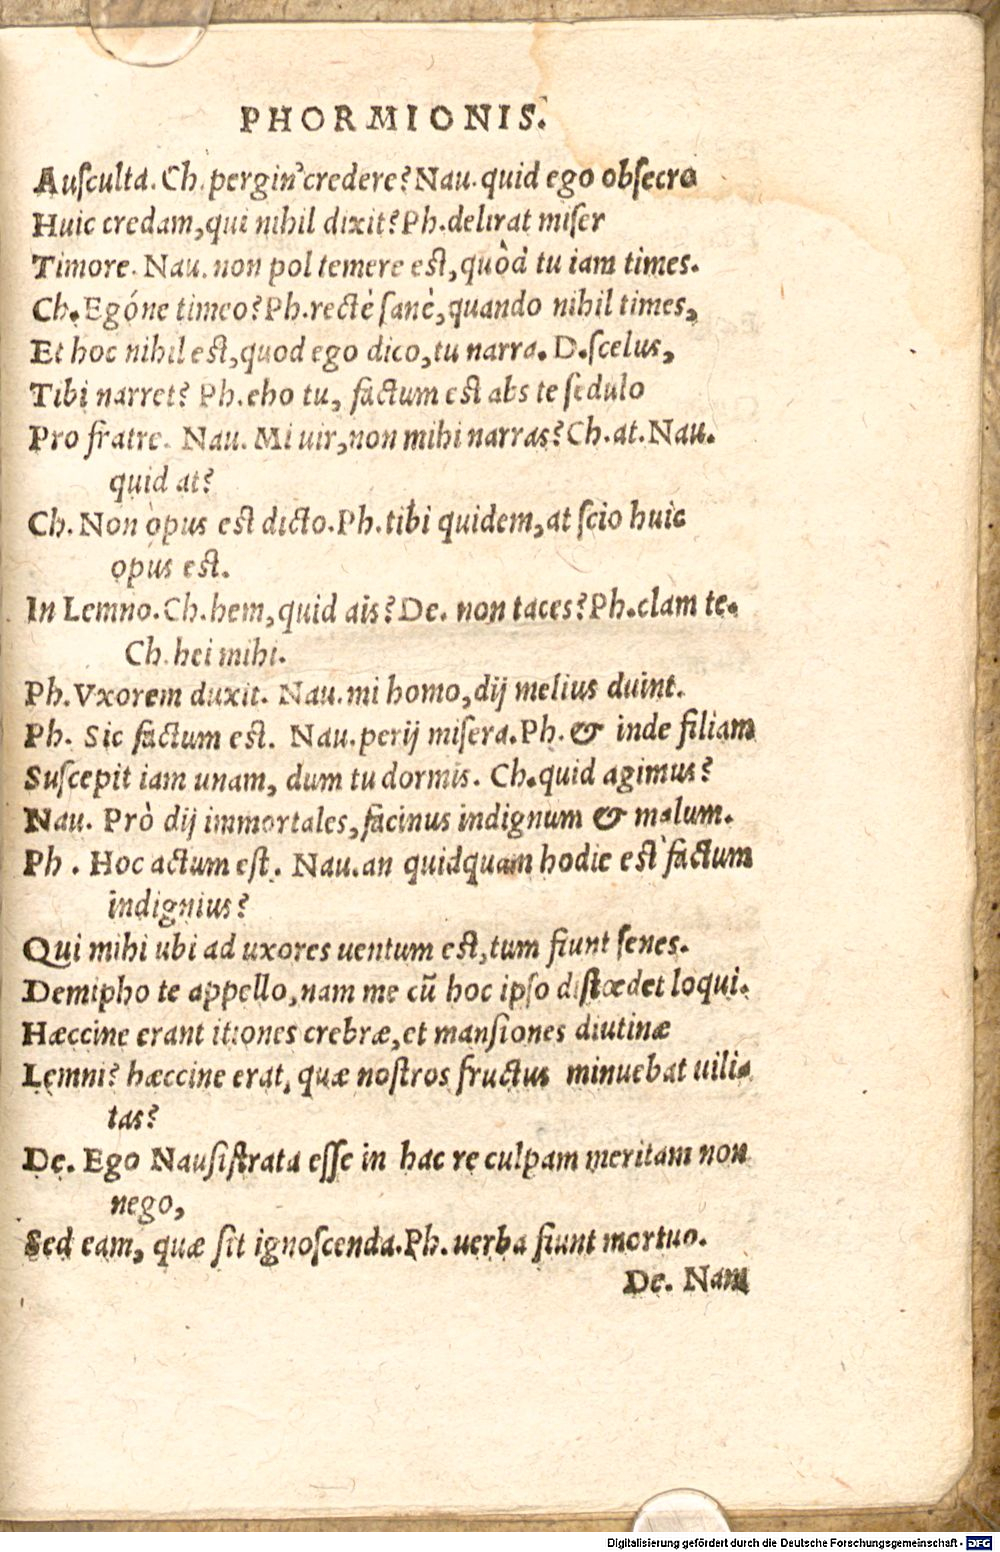 PHORMIONIS.
Ausculta. Ch. pergin' credere? Nau. quid ego obsecro
Huic credam, qui nihil dixit? Ph. delirat miser
Timore. Nau. non pol temere est, quòd tu iam times.
Ch. Egóne timeo? Ph. rectè sanè, quando nihil times,
Et hoc nihil est, quod ego dico, tu narra. D. scelus,
Tibi narret? Ph. eho tu, factum est abs te sedulo
Pro fratre. Nau. Mi uir, non mihi narras? Ch. at. Nau.
quid at?
Ch. Non opus est dicto. Ph. tibi quidem, at scio huic
opus est.
In Lemno. Ch. hem, quid ais? De. non taces? Ph. clam te.
Ch. hei mihi.
Ph. Vxorem duxit. Nau. mi homo, dij melius duint.
Ph. Sic factum est. Nau. perij misera. Ph. & inde filiam
Suscepit iam unam, dum tu dormis. Ch. quid agimus?
Nau. Prò dij immortales, facinus indignum & malum.
Ph. Hoc actum est. Nau. an quidquam hodie est factum
indignius?
Qui mihi ubi ad uxores uentum est, tum fiunt senes.
Demipho te appello, nam me cũ hoc ipso distœdet loqui.
Hæccine erant itiones crebræ, et mansiones diutinæ
Lemni? hæccine erat, quæ nostros fructus minuebat uili-
tas?
De. Ego Nausistrata esse in hac re culpam meritam non
nego,
Sed eam, quæ sit ignoscenda. Ph. uerba fiunt mortuo.
De. Nam
Digitalisierung gefördert durch die Deutsche Forschungsgemeinschaft - DFG